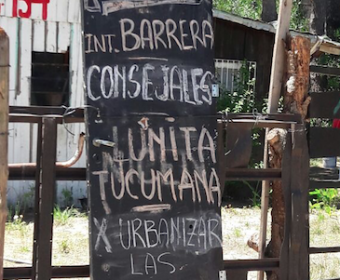 INT. BARRERA
CONSEJALES
LUNITA
TUCUMANA
X URBANIZAR
LAS